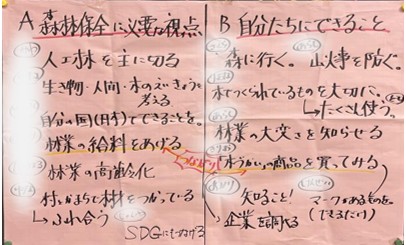 A 森林保全に必要な視点
人工林を主に切る
生き物・人間・木のえいきょうを
考える
自分の国(日本)でできることを。
林業の給料をあげる
林業の高齢化
村やまちで材をつかっている
↳ふれ合う
SDGにもつなげる
B 自分たちにできること
森に行く。 山火事を防ぐ。
木でつくられているものを大切に。
↳たくさん使う。
林業の大変さを知らせる
つながり
商品を買ってみる
知ること!
企業を調べる
マークがあるものを
(できるだけ)